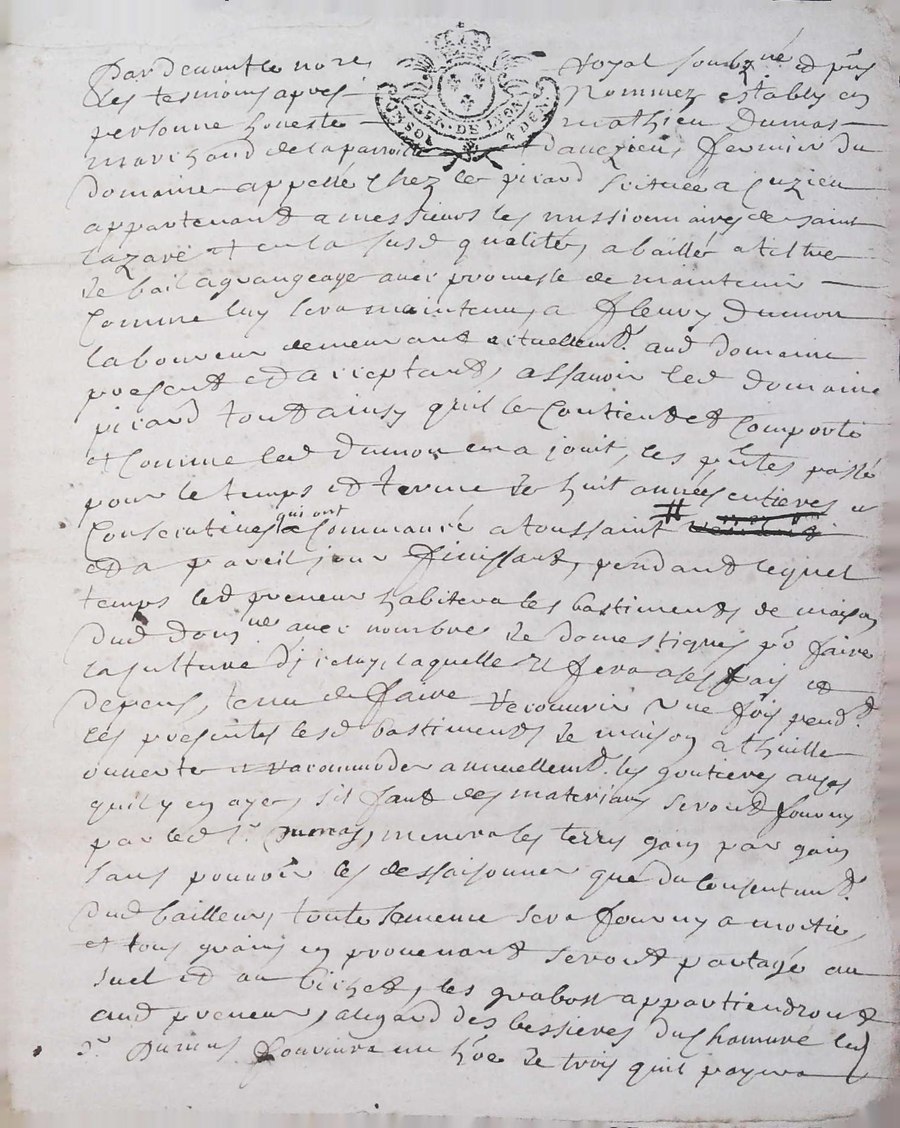 Pardevant le no.re Royal soubz.né et p.ns
les tesmoins apres Nommez estably en
GEN. DE LYON
personne honeste mathieu Dumas
marchand de la parroisse dauezieu, fermier du
domaine appellé Chez le picard scitueé a Cuzieu
appartenant a messieurs les missionnaires de saint
Lazare et en la susd qualité, a baillé a tiltre
de bail a grangeage avec promesse de maintenir
Comme luy sera maintenu, a fleury Dumon
laboureur demeurant actuellem.t aud domaine
present et acceptant, assavoir led domaine
picard tout ainsy quil se Contient et Comporte
et Comme led Dumon en a jouit, les p.ntes passé
pour le temps et terme de huit années entieres et
Consecutives qui ont Commancé a toussaint
et a pareil jour finissant, pendant lequel
temps led preneur habitera les bastiments de maison
dud dom.ne avec nombre de domestiques po faire
la culture dicelluy, laquelle il fera a ses frais et
depens, tenu de faire recouvrir une fois pend.t
les presentes lesd bastiments de maison a thuille
ouverte et racommoder annuellem.t les goutieres
quil y en aye, sil faut des materiaux seront fourny
par led s.r Dumas, menera les terres gain par gain
sans pouvoir les dessaisonner que du consentem.t
dud bailleur, toute semence sera fourny a moitié,
et tous grains en provenant seront partagé au
suel et au bichet, les grabost appartiendront
aud preneur, a legard des bessieres du chanvre led
s.r Dumas fournira un h.e de trois quil payera